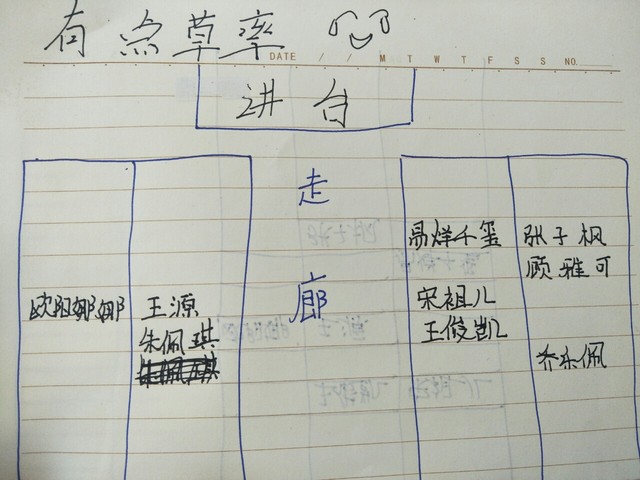 有点草率
DATE / / M T W T F S S NO.
讲台
走
廊
易烊千玺 张子枫
顾雅可
欧阳娜娜 王源 宋祖儿
朱佩琪 王俊凯
乔东佩